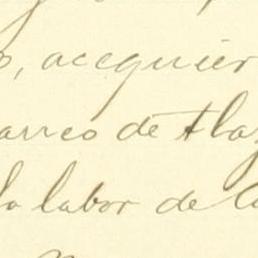 acequier
arreo de tlaz
la labor de